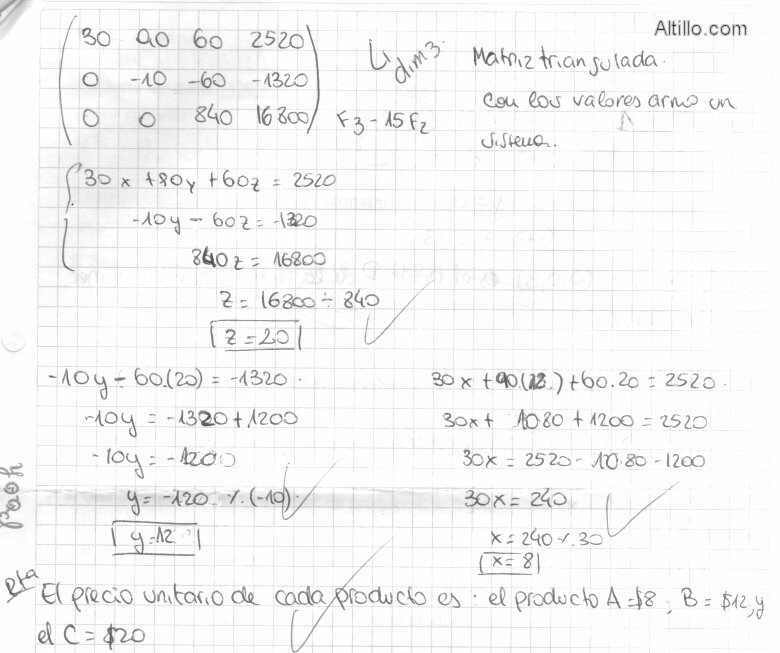 Altillo.com
30 90 60 2520
0 -10 -60 -1320
0 0 840 16800 F3 - 15 F2
↳ dim 3. Matriz triangulada.
con los valores armo un
sistema.
30x + 90y + 60z = 2520
-10y - 60z = -1320
840z = 16800
z = 16800 ÷ 840
z = 20
-10y - 60.(20) = -1320.
-10y = -1320 + 1200
-10y = -120
y = -120 ٪ (-10).
y = 12
30x + 90(12) + 60.20 = 2520.
30x + 1080 + 1200 = 2520
30x = 2520 - 1080 - 1200
30x = 240
x = 240 ٪ 30
x = 8
Rta El precio unitario de cada producto es: el producto A = $8, B = $12, y
el C = $20